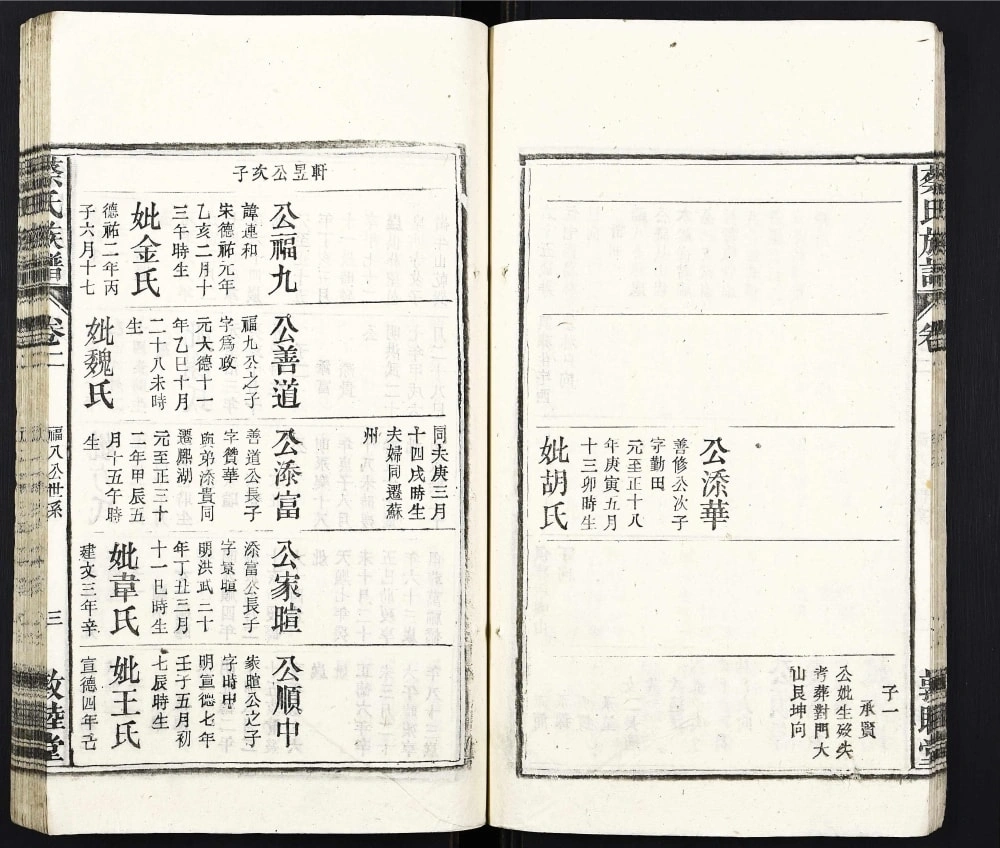 公添華
善修公次子
字勤田
元至正十八
年庚寅五月
十三卯時生
妣胡氏
子一
承賢
公妣生歿失
考葬對門大
山艮坤向
軒昱公亥子
公福九
諱運和
宋德祐元年
乙亥二月十
三午時生
妣金氏
德祐二年丙
子六月十七
公善道
福九公之子
字爲政
元大德十一
年乙巳十月
二十八未時
生
妣魏氏
同夫庚三月
十四戌時生
夫婦同遷蘇
州
公添富
善道公長子
字贊華
與弟添貴同
遷熙湖
元至正三十
二年甲辰五
月十五午時
生
公家暄
添富公長子
字景暄
明洪武二十
年丁丑三月
十一巳時生
妣韋氏
建文三年辛
公順中
家暄公之子
字時中
明宣德七年
壬子五月初
七辰時生
妣王氏
宣德四年己
蔡氏族譜
卷二
福八公世系
三
敦睦堂